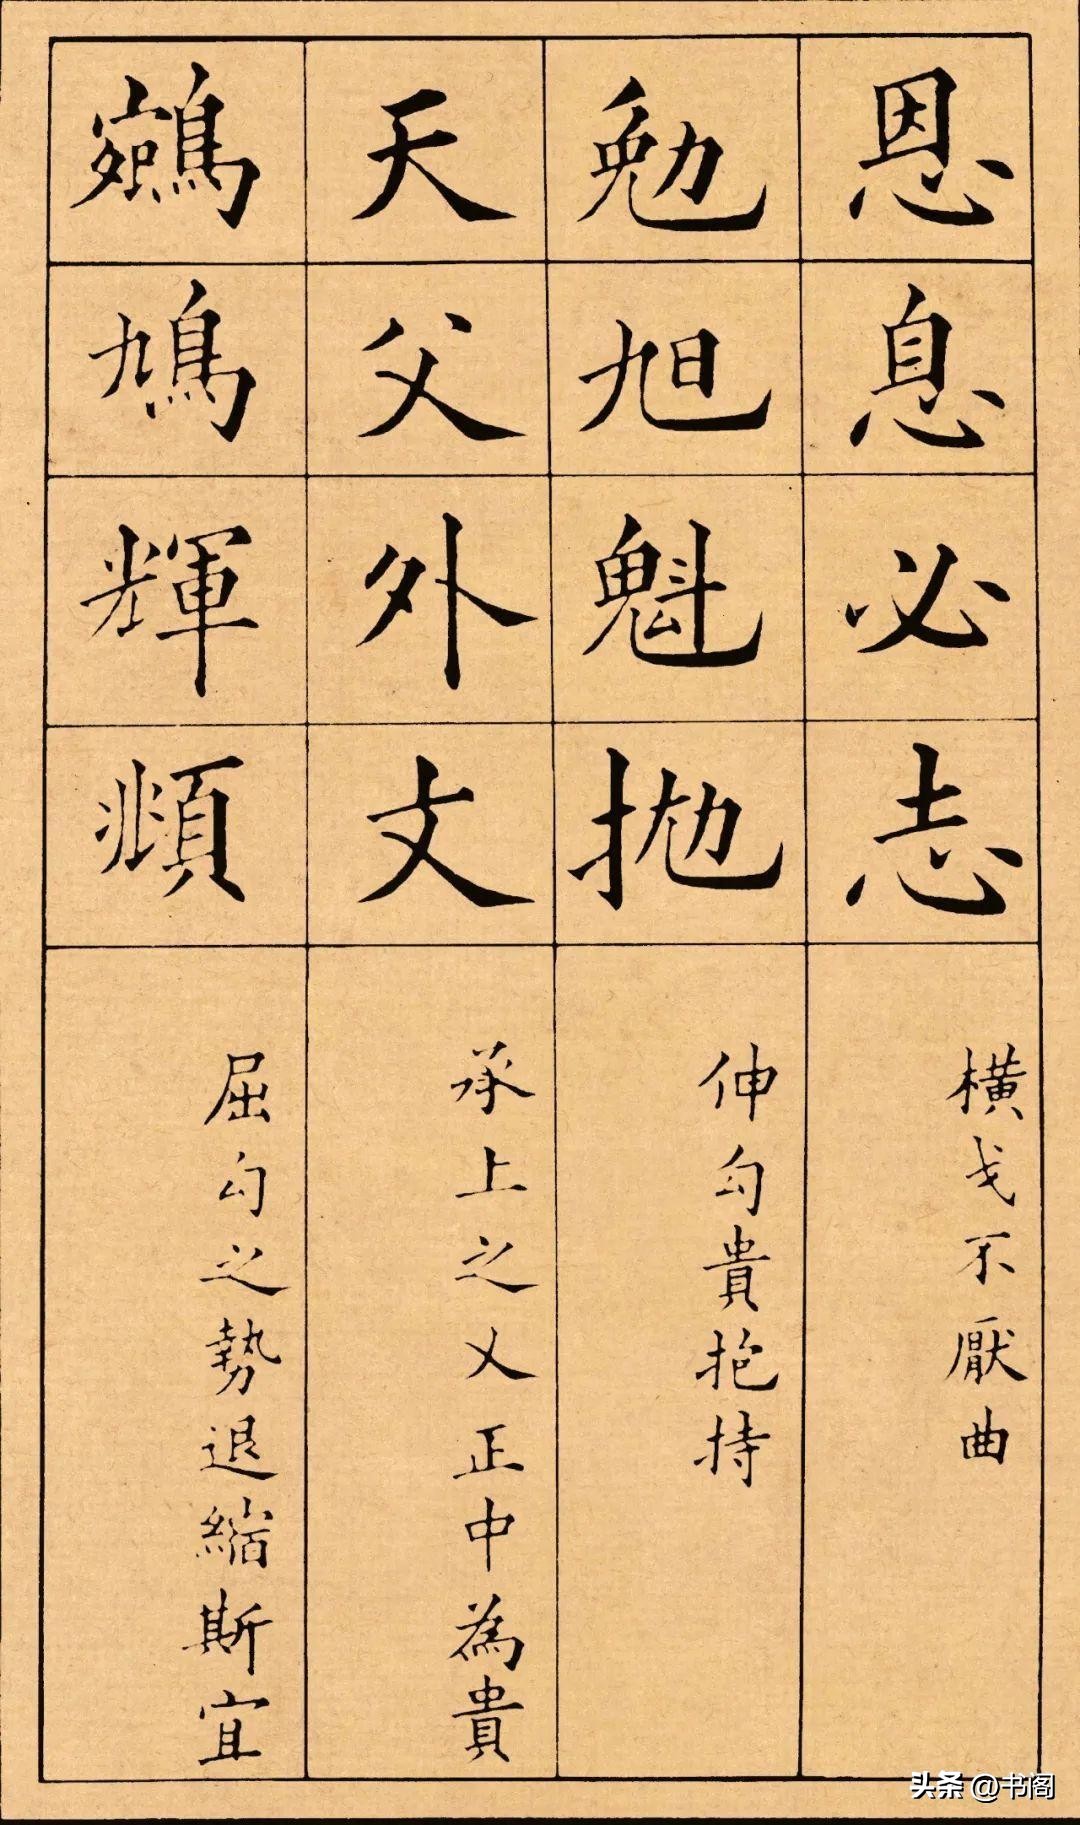 恩息必志
橫戈不厭曲
勉旭魁抛
伸勾貴抱持
天父外文
承上之乂正中為貴
鳩輝頫
屈勾之勢退縮斯宜
头条 @书阁